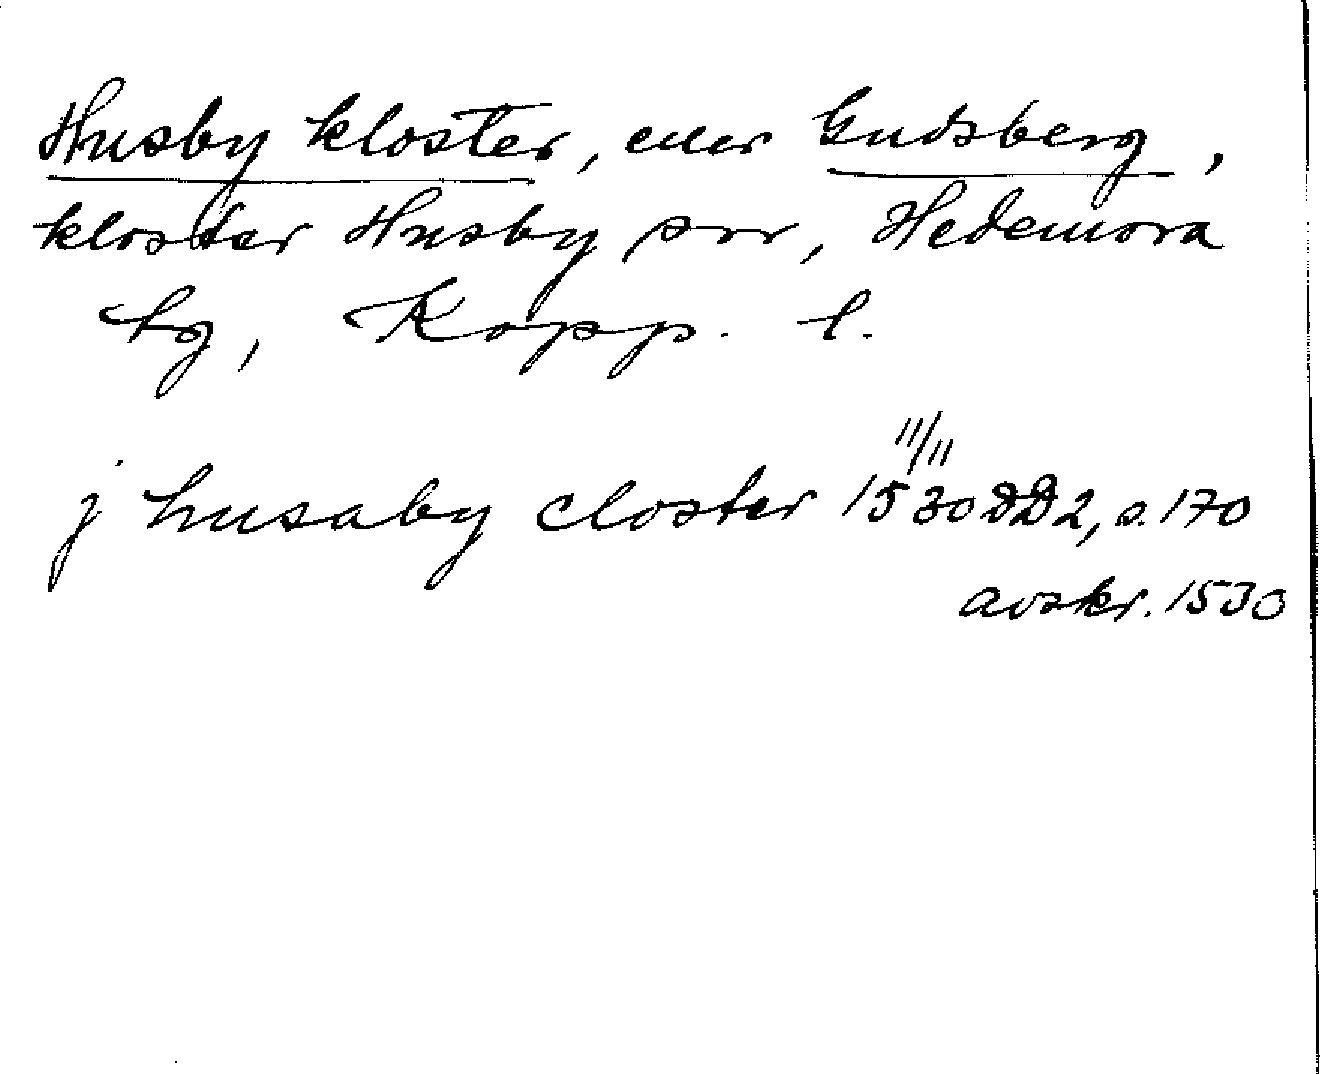 Husby kloster, eller Gudsberg,
kloster Husby snr, Hedemora
tg, Kopp. l.
11/11
j husaby closter 1530 DD2, s. 170
avskr. 1530